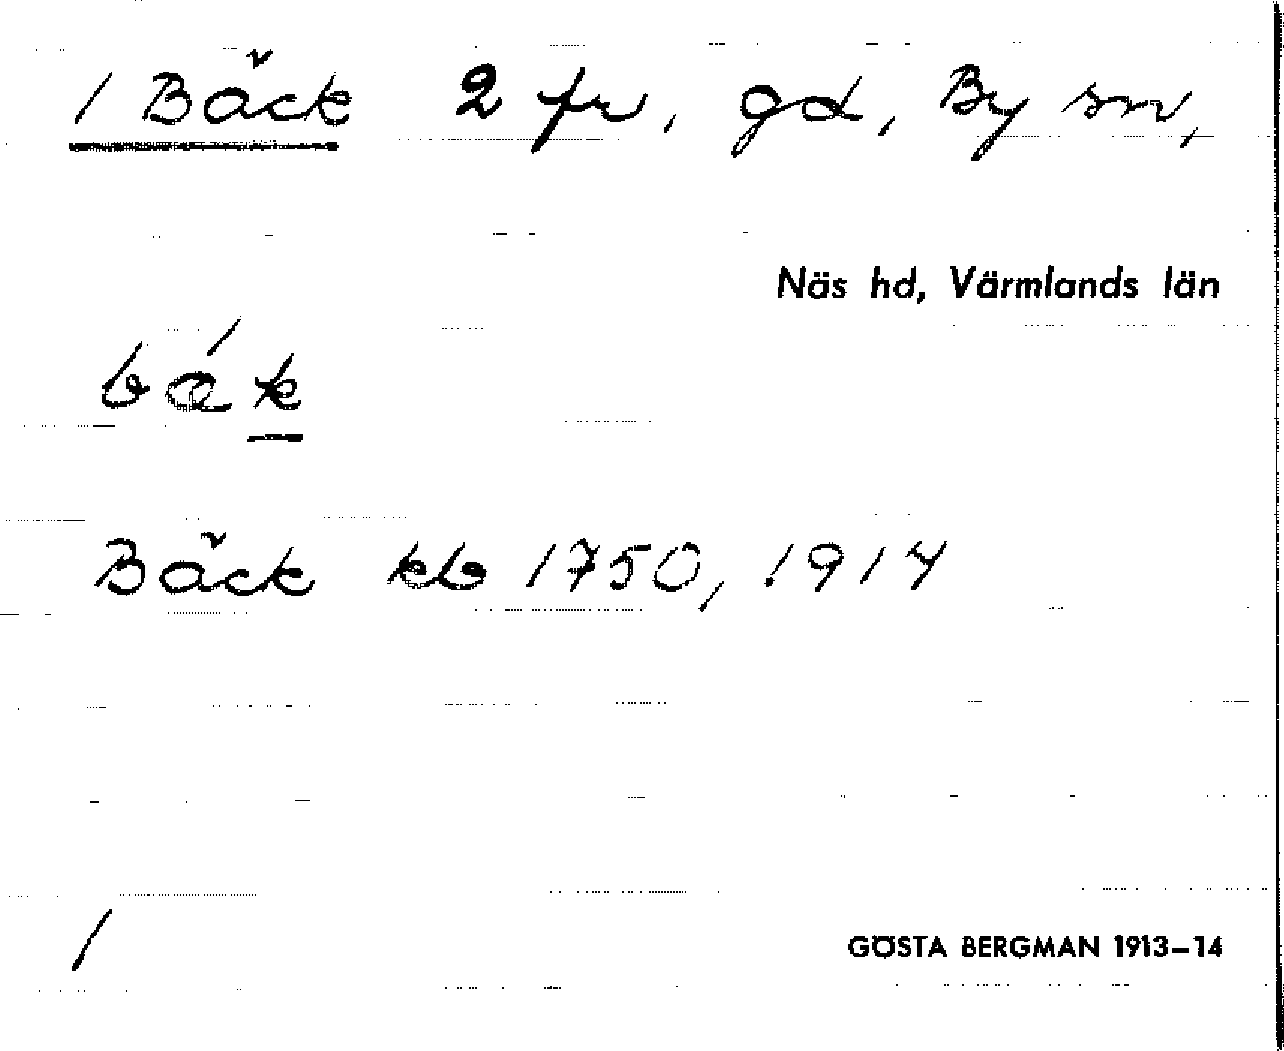 1 Bäck 2 fr, gd, By sn,
Näs hd, Värmlands län
bák
Bäck kb 1750, 1914
/
GÖSTA BERGMAN 1913–14